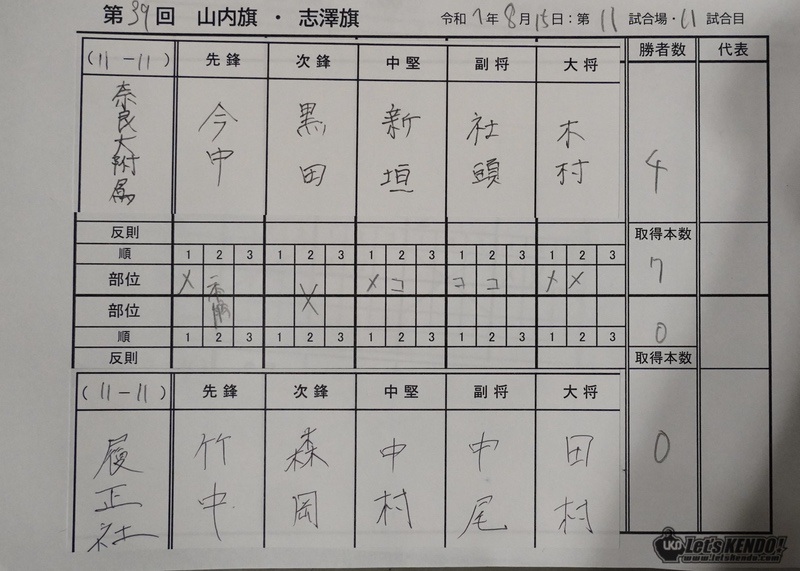 第39回 山内旗・志澤旗 令和7年8月15日:第11試合場・11試合目
(11-11) 先鋒 次鋒 中堅 副将 大将 勝者数 代表
奈良大附属 今中 黒田 新垣 社頭 木村 4
反則 取得本数
順 1 2 3 1 2 3 1 2 3 1 2 3 1 2 3
部位 メ メ コ コ コ メ メ 7
部位 0
順 1 2 3 1 2 3 1 2 3 1 2 3 1 2 3
反則 取得本数
(11-11) 先鋒 次鋒 中堅 副将 大将
履正社 竹中 森岡 中村 中尾 田村 0
LKD Let's KENDO!
www.letskendo.com